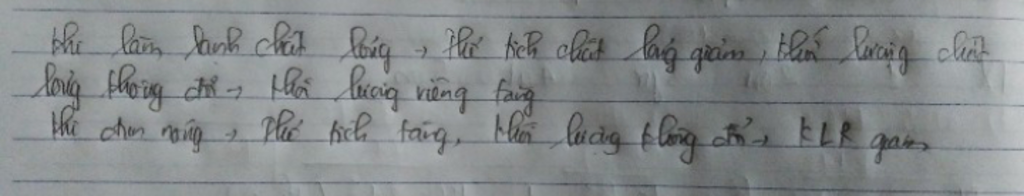 khi làm lạnh chất lỏng → thể tích chất lỏng giảm, khối lượng chất
lỏng không đổi → khối lượng riêng tăng
khi đun nóng → thể tích tăng, khối lượng không đổi → KLR giảm